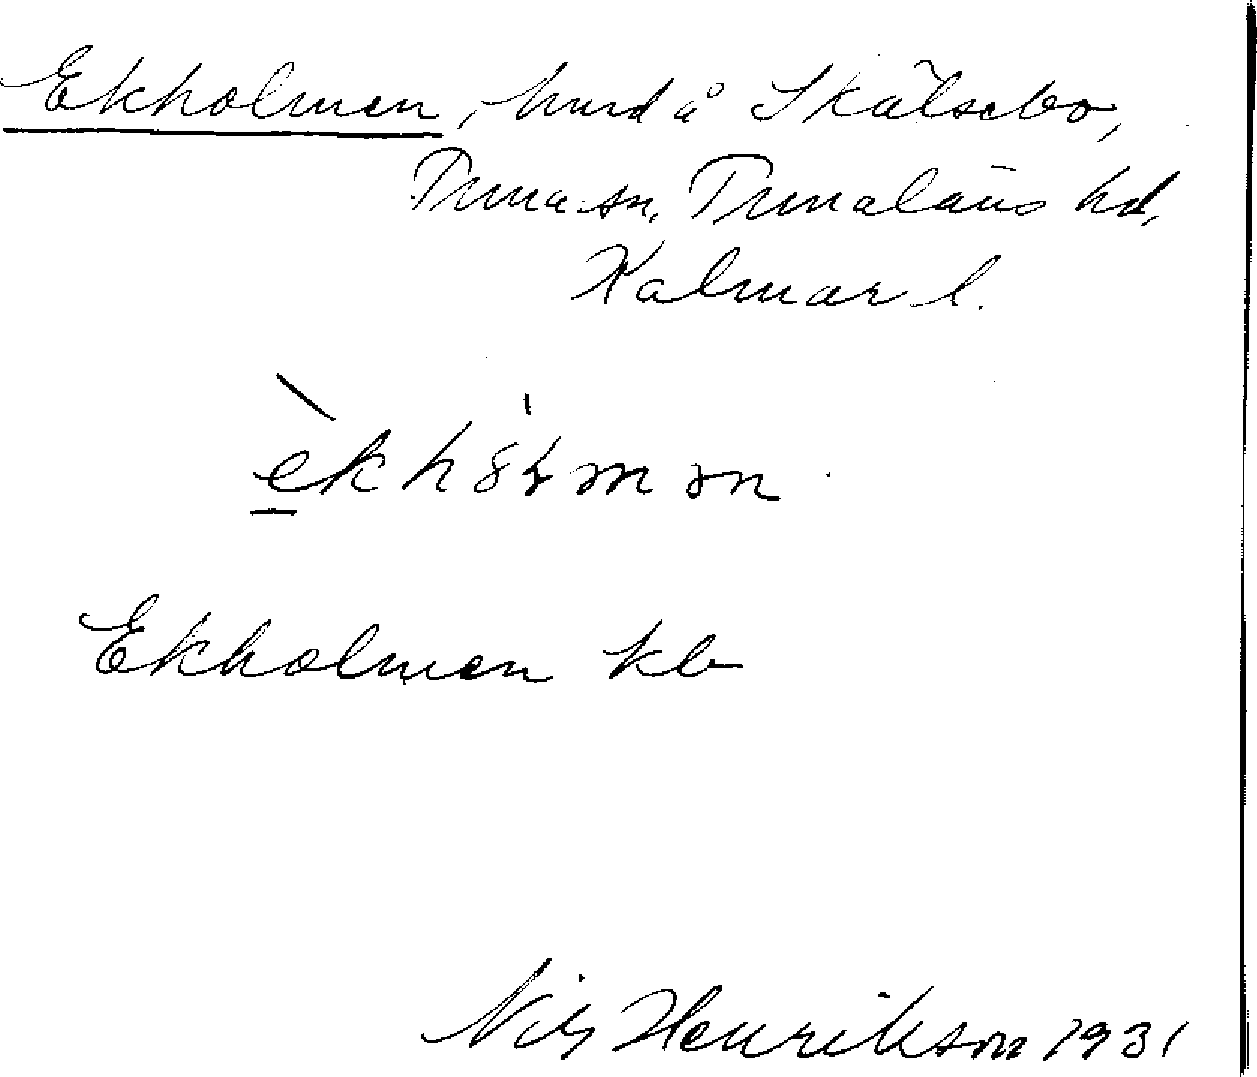 Ekholmen, hmd å Skälsebo,
Tuna sn, Tunaläns hd,
Kalmar l.
Ekholmen kb
Nils Henrikson 1931